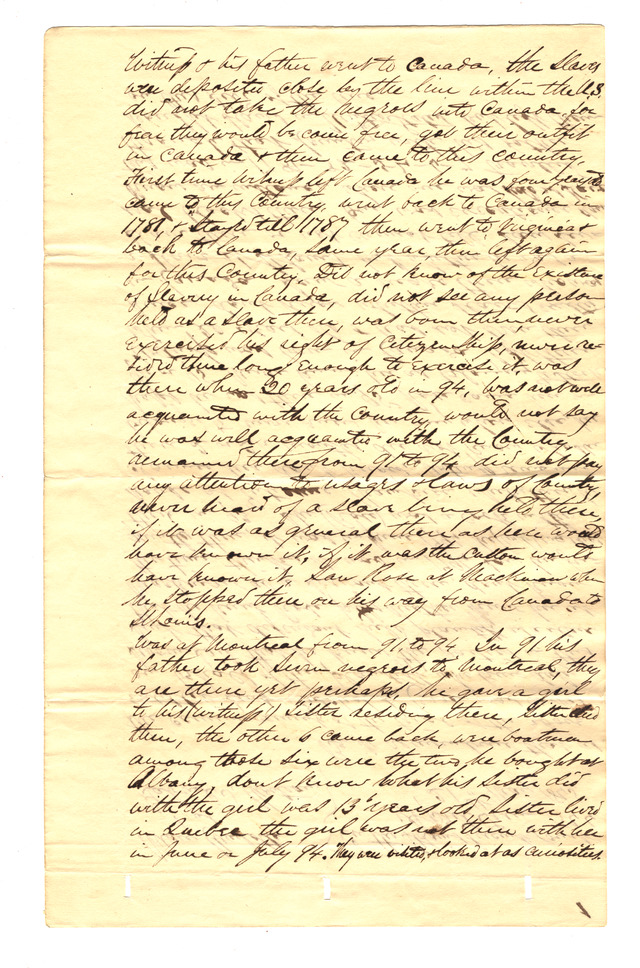 Witness & his father went to Canada, the slaves
were deposited close by the line within the U.S.
did not take the negroes into Canada for
fear they would become free, got their outfit
in Canada & then came to this country.
First time Witness left Canada he was four years
came to this Country, went back to Canada in
1781, & stayed till 1787 then went to Virginia &
back to Canada, same year, then left again
for this Country. Did not know of the Existence
of Slavery in Canada, did not see any person
held as a slave there, was born there, never
exercised his right of Citizenship, never re-
sided there long enough to exercise it was
there when 20 years old in 94, was not well
acquainted with the country, would not say
he was well acquainted with the Country
remained there from 91 to 94 did not pay
any attention to usages & laws of Country,
never heard of a slave being held there,
if it was as general there as here would
have known it, if it was the custom would
have known it, saw Rose at Mackinaw when
he stopped there on his way from Canada to
St Louis.
Was at Montreal from 91 to 94 In 91 his
father took seven negroes to Montreal, they
are there yet perhaps. he gave a girl
to his (witness') sister residing there, sister died
there, the other 6 came back, were boatmen
among those six were the two he bought at
Albany, dont know what his sister did
with the girl was 13 years old, sister lived
in Quebec the girl was not there with her
in June or July 94. They were visited, & looked at as curiosities.